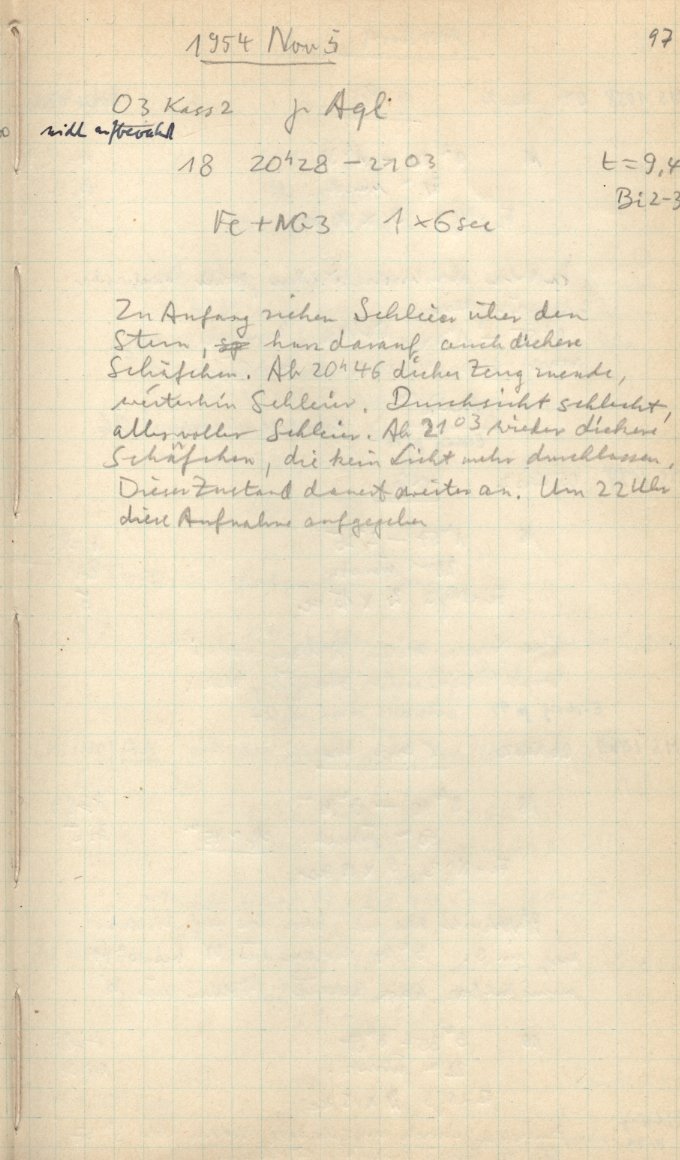 1954 Nov 5
97
O3 Kass 2 γ Aql
nicht aufbewahrt
18 20h28 – 2103
t = 9,4
Bi 2-3
Fe + NG3 1 × 6 sec
Zu Anfang ziehen Schleier über den
Stern, kurz darauf auch dickere
Schäfchen. Ab 20h46 dickes Zeug
weiterhin Schleier. Durchsicht schlecht,
alles voller Schleier. Ab 2103 wieder dickere
Schäfchen, die kein Licht mehr durchlassen.
Dieser Zustand dauert weiter an. Um 22 Uhr
diese Aufnahme aufgegeben